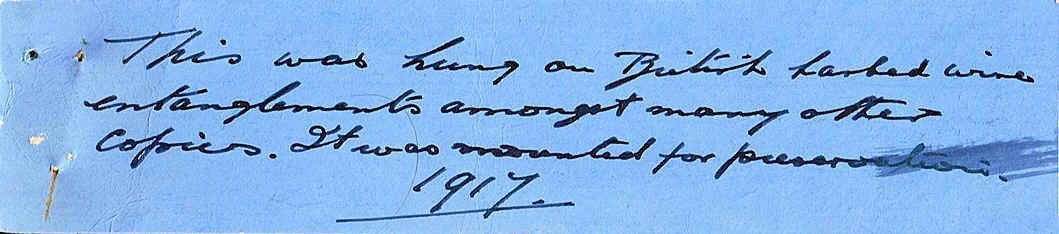 This was hung on British barbed wire
entanglements amongst many other
copies. It was mounted for preservation.
1917.